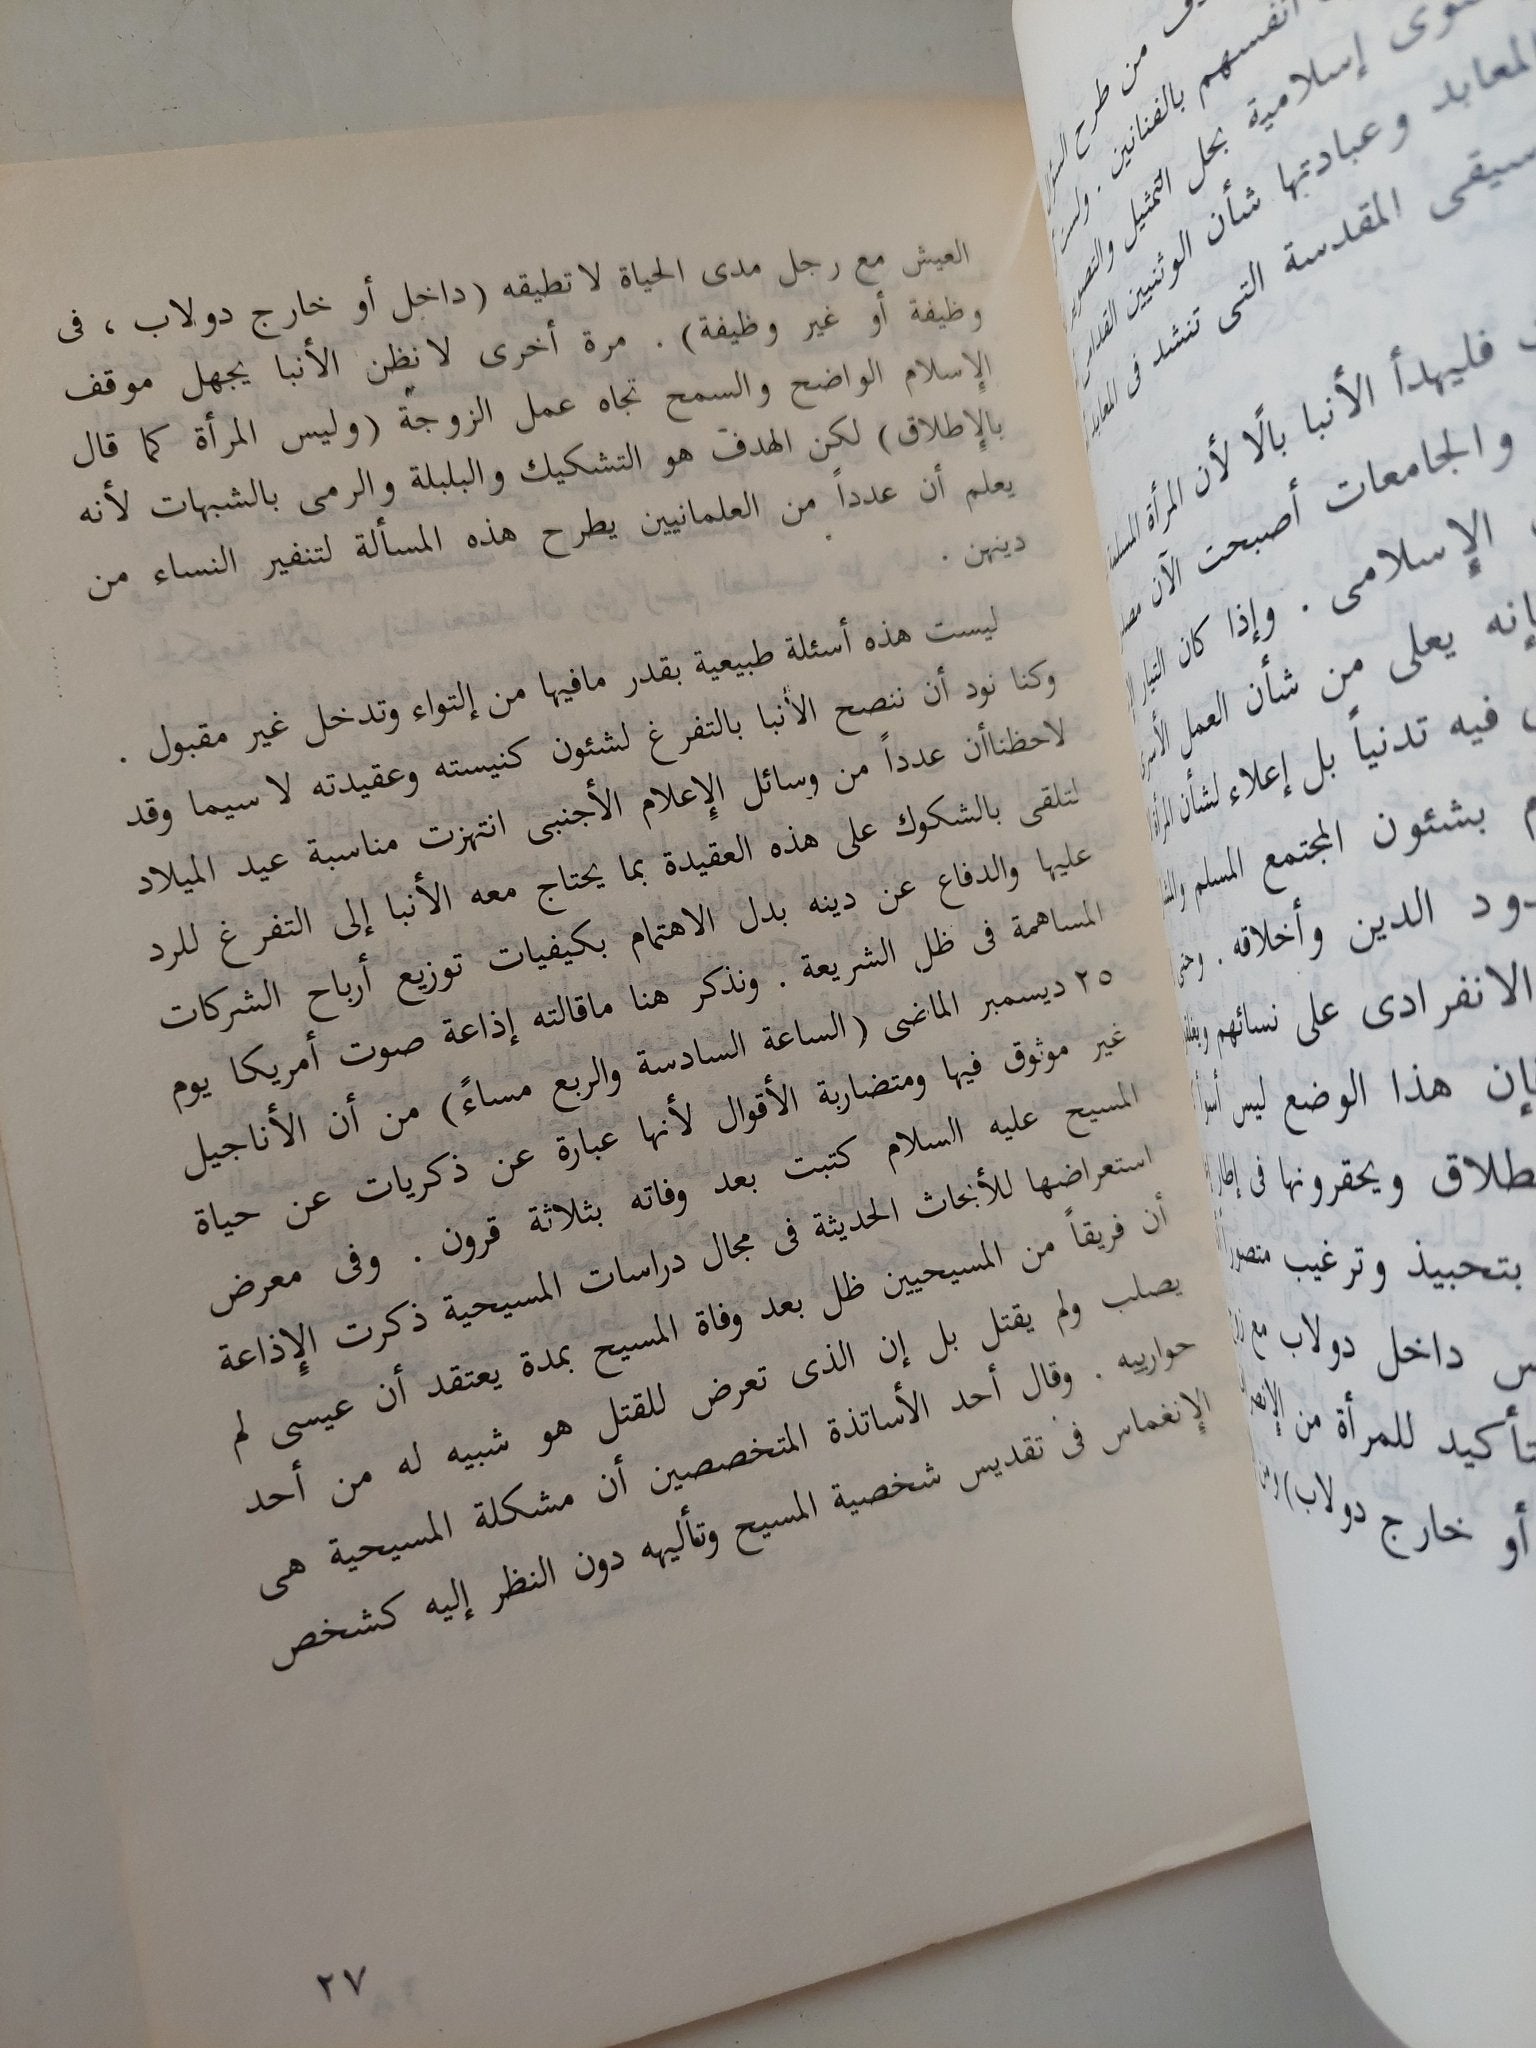 العيش مع رجل مدى الحياة لا تطيقه (داخل أو خارج دولاب ، فى
وظيفة أو غير وظيفة) . مرة أخرى لا نظن الأنبا يجهل موقف
الإسلام الواضح والسمح تجاه عمل الزوجة (وليس المرأة كما قال
بالإطلاق) لكن الهدف هو التشكيك والبلبلة والرمى بالشبهات لأنه
يعلم أن عدداً من العلمانيين يطرح هذه المسألة لتنفير النساء من
دينهن .
ليست هذه أسئلة طبيعية بقدر مافيها من إلتواء وتدخل غير مقبول .
وكنا نود أن ننصح الأنبا بالتفرغ لشئون كنيسته وعقيدته لا سيما وقد
لاحظناأن عدداً من وسائل الإعلام الأجنبى انتهزت مناسبة عيد الميلاد
لتلقى بالشكوك على هذه العقيدة بما يحتاج معه الأنبا إلى التفرغ للرد
عليها والدفاع عن دينه بدل الاهتمام بكيفيات توزيع أرباح الشركات
المساهمة فى ظل الشريعة . ونذكر هنا ماقالته إذاعة صوت أمريكا يوم
٢٥ ديسمبر الماضى (الساعة السادسة والربع مساءً) من أن الأناجيل
غير موثوق فيها ومتضاربة الأقوال لأنها عبارة عن ذكريات عن حياة
المسيح عليه السلام كتبت بعد وفاته بثلاثة قرون . وفى معرض
استعراضها للأبحاث الحديثة فى مجال دراسات المسيحية ذكرت الإذاعة
أن فريقاً من المسيحيين ظل بعد وفاة المسيح بمدة يعتقد أن عيسى لم
يصلب ولم يقتل بل إن الذى تعرض للقتل هو شبيه له من أحد
حوارييه . وقال أحد الأساتذة المتخصصين أن مشكلة المسيحية هى
الإنغماس فى تقديس شخصية المسيح وتأليهه دون النظر إليه كشخص
٢٧
من طرح
أنفسهم بالفنانين .
إسلامية بحل التمثيل
المعابد وعبادتها شأن الوثنيين
المقدسة التى تنشد فى
فليهدأ الأنبا بالًا لأن المرأة
والجامعات أصبحت الآن
الإسلامى . وإذا كان التيار
يعلى من شأن العمل
فيه تدنياً بل إعلاء لشأن
بشئون المجتمع المسلم
الدين وأخلاقه .
الانفرادى على نسائهم
هذا الوضع ليس
ويحقرونها فى إطار
بتحبيذ وترغيب
داخل دولاب مع
للمرأة من
أو خارج دولاب)